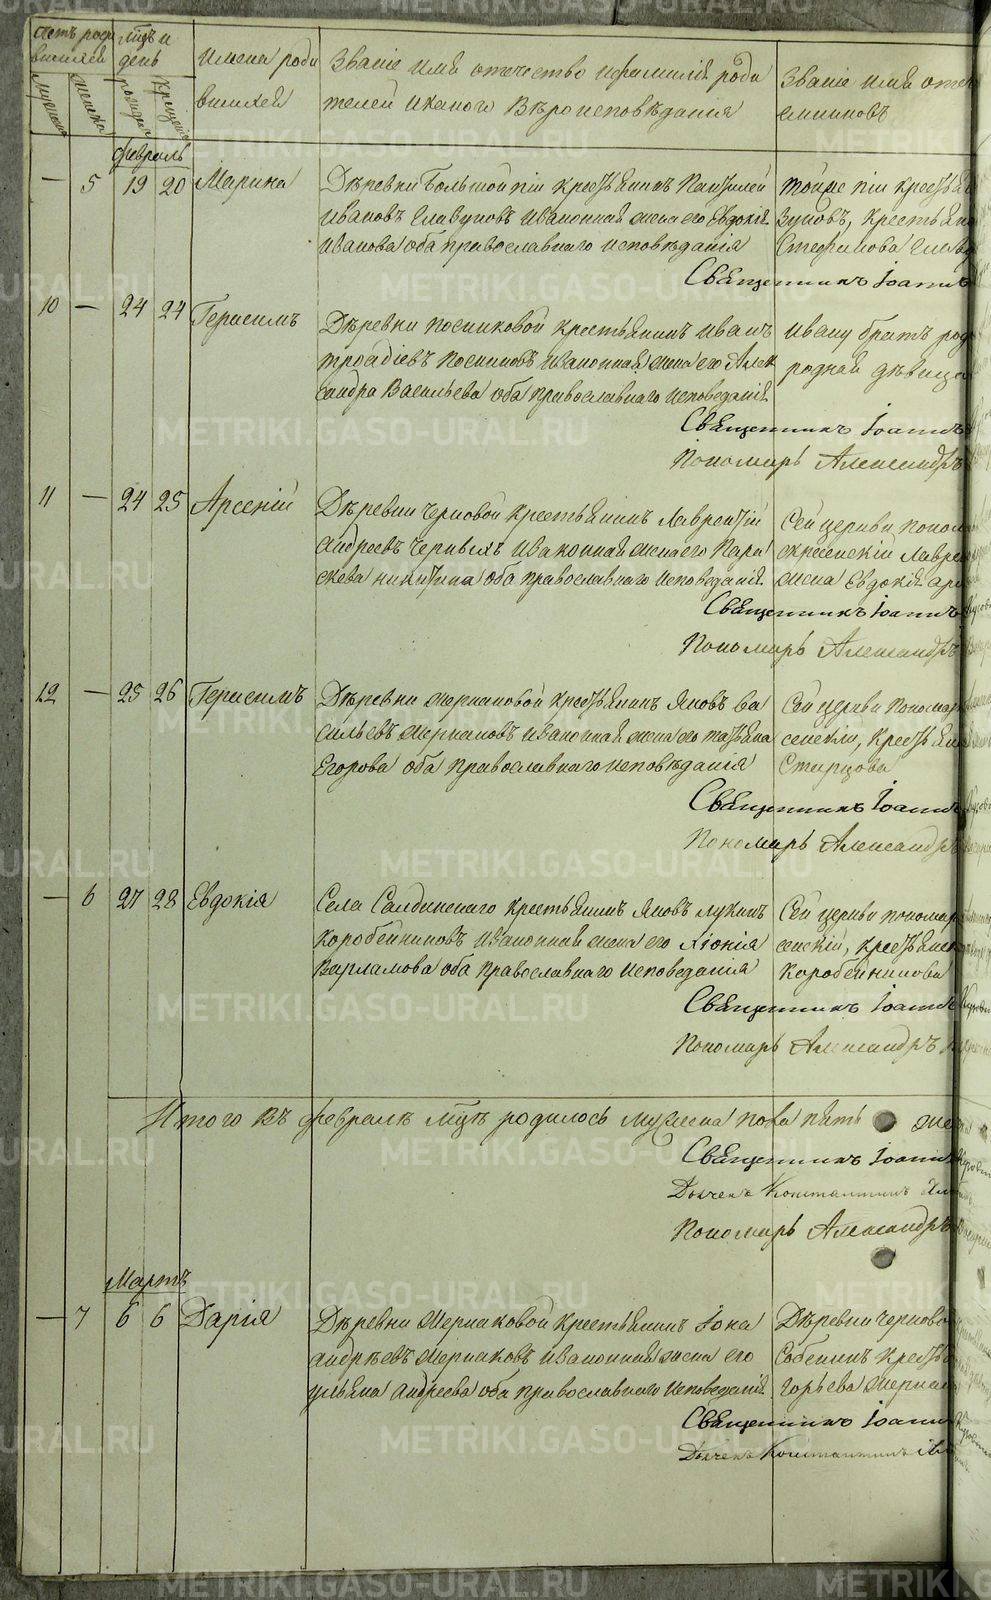 Счетъ роди
вшихся
Мцъ и
день
Имена роди
вшихся
Званіе имя отечество и фамилія роди
телей и какого Вѣроисповѣданія
Званіе имя отеч
емниковъ
Мужеска
Женска
рожденія
Крещенія
Февраль
— 5 19 20 Марина
Дѣревни Большой піи крестьянинъ Пантилей
Ивановъ Главуновъ и законная жена его Евдокія
Иванова оба православнаго исповѣданія
Тойже піи крестьян
зуновъ, крестьянс
Стефанова
Священникъ Іоаннъ
10 — 24 24 Герасимъ
Дѣревни Посниковой крестьянинъ Иванъ
Троадіевъ Посниковъ и законная жена его Алек
сандра Васильева оба православнаго исповеданія
Ивану братъ род
родная дѣвица
Священникъ Іоаннъ
Пономарь Александръ
11 — 24 25 Арсеній
Дѣревни Черновой крестьянинъ Лаврентій
Андреевъ Черныхъ и законная жена его Пара
скева Никитина оба православнаго исповеданія
Сей церкви поном
скресенскій Лавре
жена Евдокія
Священникъ Іоаннъ
Пономарь Александръ
12 — 25 26 Герасимъ
Дѣревни Мериаковой крестьянинъ Яковъ Ва
сильевъ Мериаковъ и законная жена его Татьяна
Егорова оба православнаго исповѣданія
Сей церкви пономарь
сенскій, крестьян
Старцова
Священникъ Іоаннъ
Пономарь Александръ
— 6 27 28 Евдокія
Села Салдинскаго крестьянинъ Яковъ Лукинъ
Коробейниковъ и законная жена его Хіонія
Варламова оба православнаго исповеданія
Сей церкви пономарь
сенскій, крестьянс
Коробейникова
Священникъ Іоаннъ
Пономарь Александръ
Итого въ февралѣ мцѣ родилось мужеска пола пять женс
Священникъ Іоаннъ
Дьячекъ Константинъ
Пономарь Александръ
Мартъ
— 7 6 6 Дарія
Дѣревни Мериаковой крестьянинъ Іона
Андрѣевъ Мериаковъ и законная жена его
Ульяна Андреева оба православнаго исповеданія
Дѣревни Черново
крестья
горьева Мериак
Священникъ Іоаннъ
Дьячекъ Константинъ
METRIKI.GASO-URAL.RU